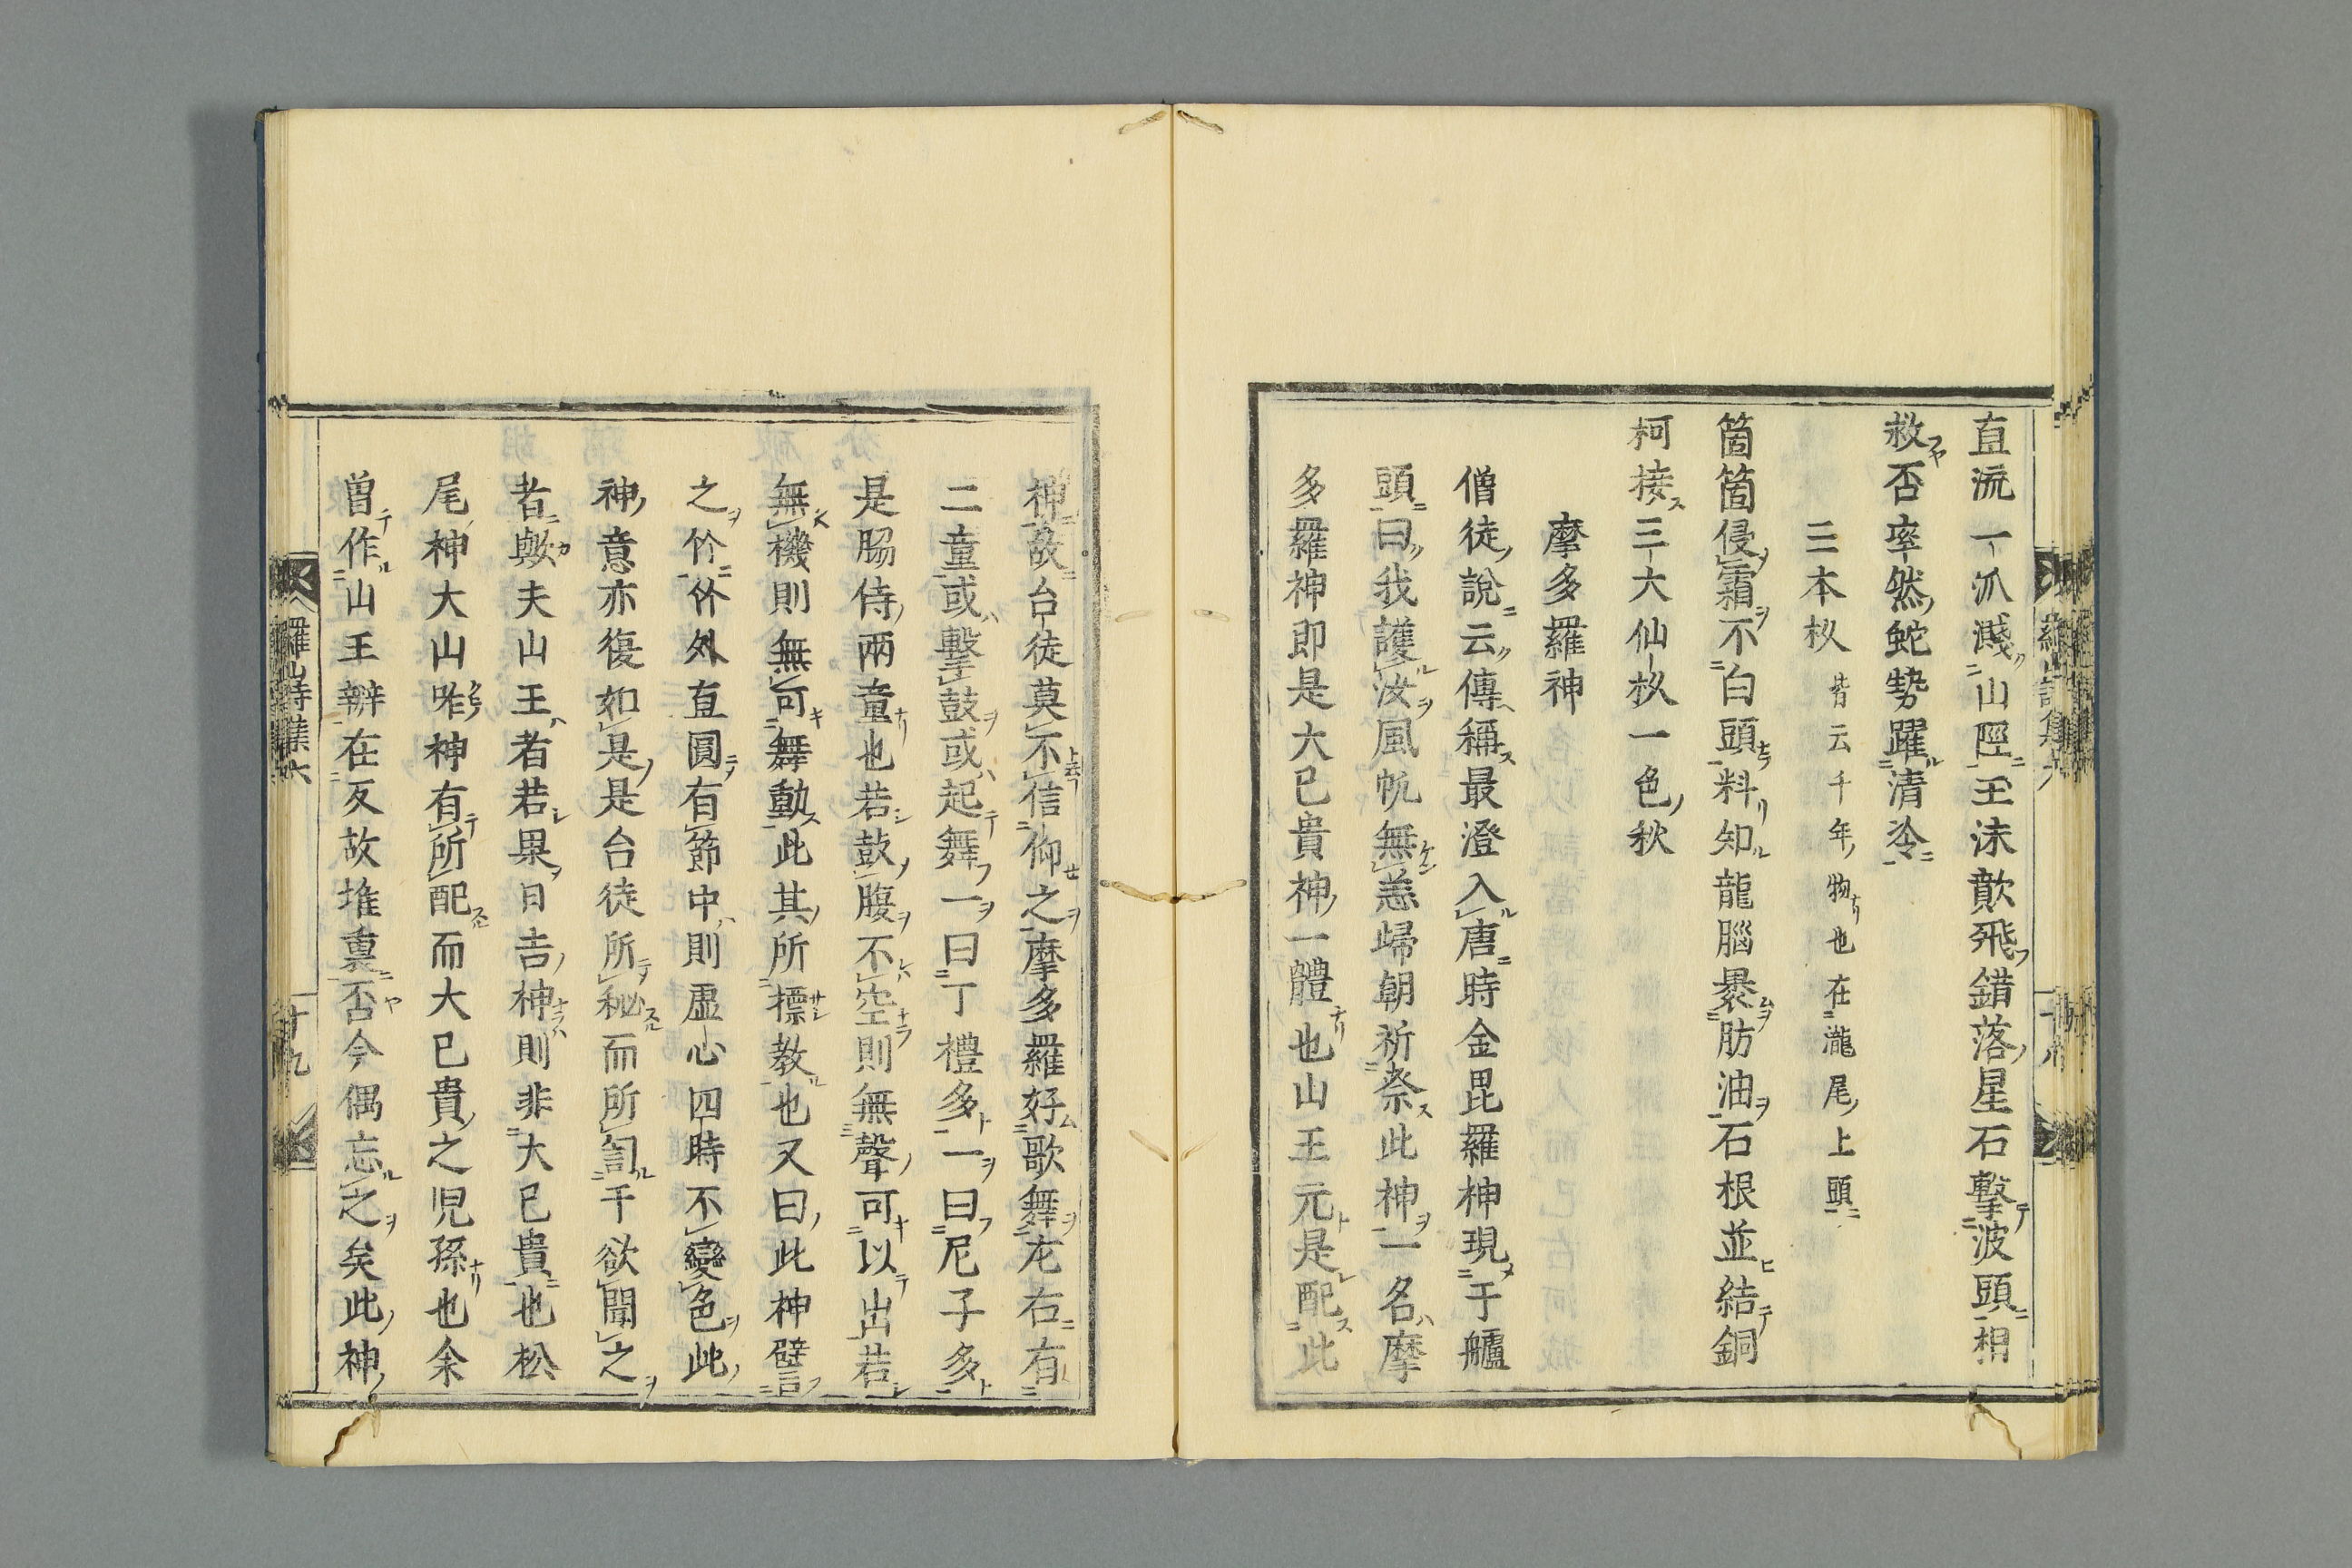 直流一派濺山陘玉沫歕飛錯落星石擊波頭相
救否率然蛇勢躍清冷
三本杦 皆云千年物也在瀧尾上頭
箇箇侵霜不白頭料知龍腦㬥肪油石根並結銅
柯接三大仙杦一色秋
摩多羅神
僧徒說云傳稱最澄入唐時金毘羅神現于艫
頭曰我護汝風帆無恙歸朝祈祭此神一名摩
多羅神即是大已貴神一體也山王元是配此
神故台徒莫不信仰之摩多羅好歌舞左右有
二童或擊鼓或起舞一曰丁禮多一曰尼子多
是脇侍兩童也若鼓腹不空則無聲可以出若
無機則無可舞動此其所標教也又曰此神譬
之竹竹外直圓有節中則虛心四時不變色此
神意亦復如是是台徒所秘而所訇于欲聞之
者歟夫山王者若果日吉神則非大已貴也松
尾神大山咋神有所配而大已貴之児孫也余
曽作山王辯在反故堆裏否今偶忘之矣此神
羅山詩集六
十九